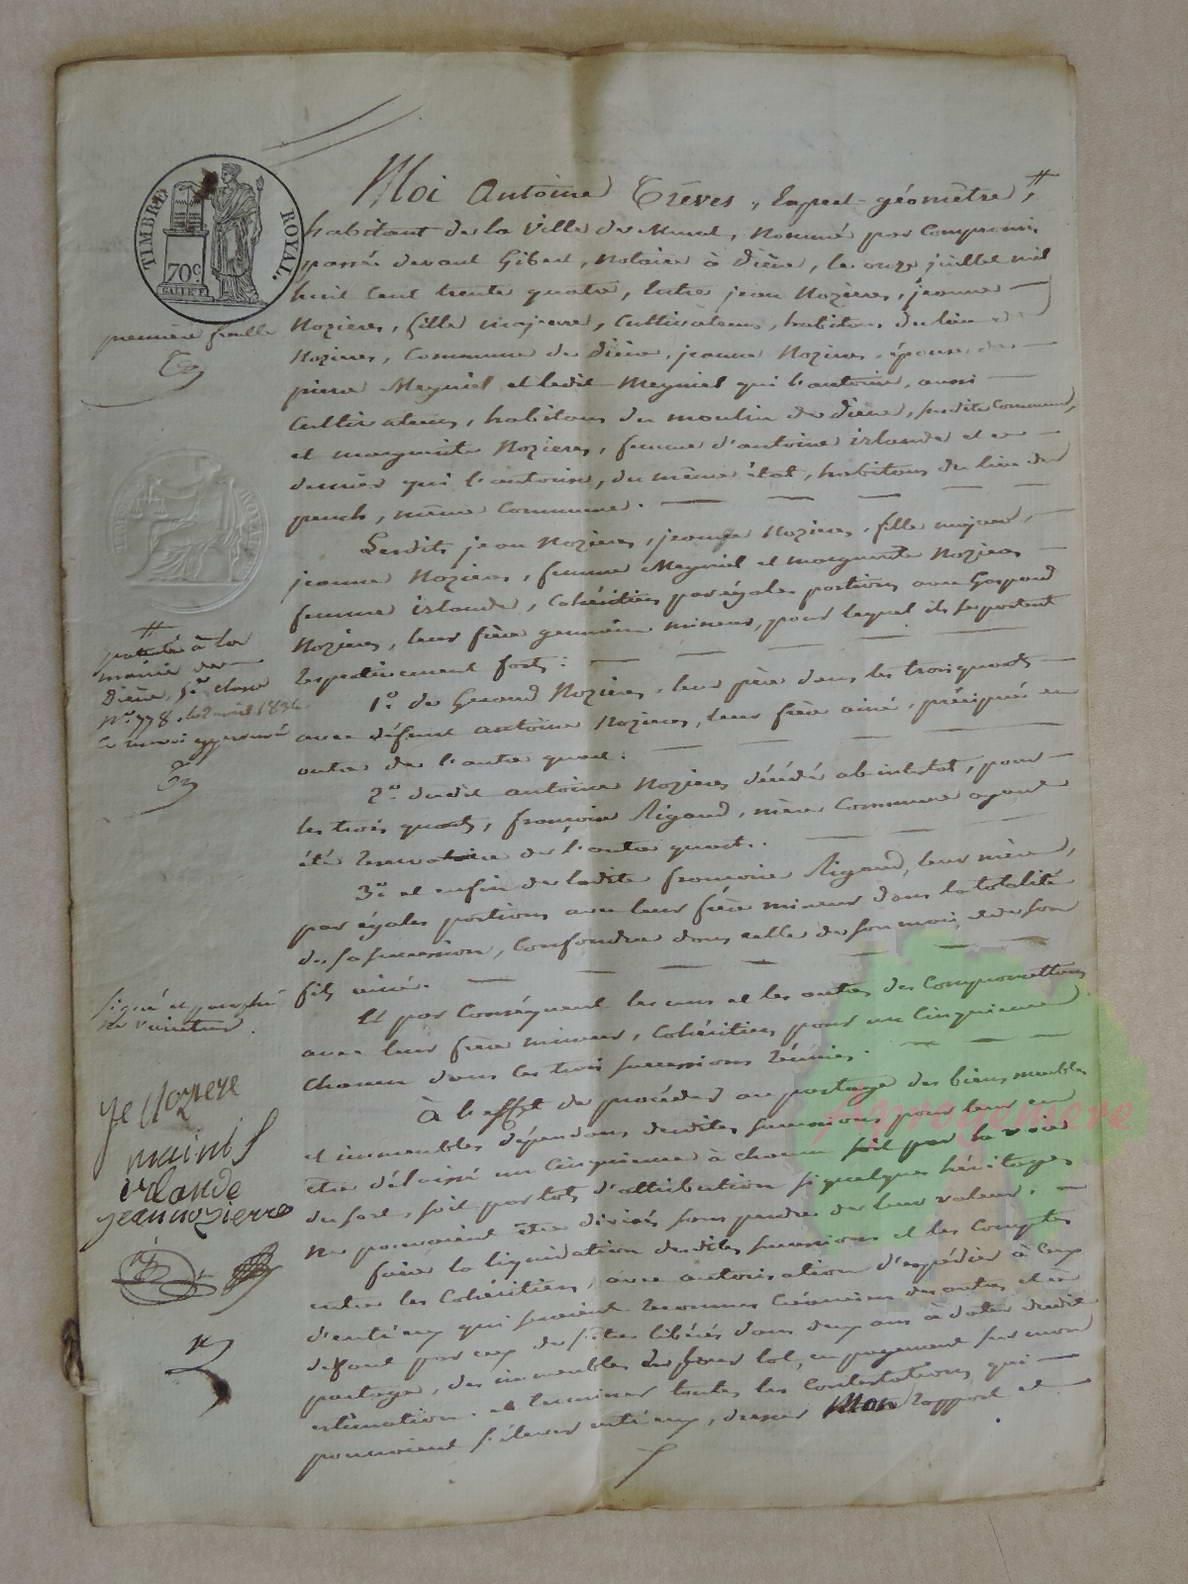 TIMBRE ROYAL.
70c
première feuille
Moi Antoine Trèves, Expert-géomètre, #
habitant de la Ville de Murat, Nommé par Compromis
passé devant Gibert, Notaire à Dième, le onze juillet mil
huit cent trente quatre, Entre jean Nozières, jeanne
Nozières, fille majeure, Cultivateurs, habitans du lieu de
Nozieres, Commune de Dième, jeanne Nozieres, épouse de
pierre Meyniel et ledit Meyniel qui l'autorise, aussi
Cultivateurs, habitans du moulin de Dième, susdite Commune,
et marguerite Nozieres, femme d'antoine irlande et ce
dernier qui l'autorise, du même état, habitans du lieu de
peuch, même Commune.
Lesdits jean Nozieres, jeanne Nozieres, fille majeure,
jeanne Nozieres, femme Meyniel et marguerite Nozieres
femme irlande, Cohéritiers par égales portions avec Gaspard
Nozières, leur frère germain mineur, pour lequel ils se portent
respectivement forts:
1o. de Geraud Nozières, leur père dans les trois quarts
avec défunt antoine Nozieres, leur frère ainé, préciput en
outre de l'autre quart.
2o. dudit antoine Nozieres décédé ab intestat, pour
les trois quarts, françoise Rigaud, mère Commune ayant
été de l'autre quart.
3o. et enfin de ladite françoise Rigaud, leur mère,
par égales portions avec leur frère mineur dans la totalité
de sa succession, Confondue dans celle de son mari et de son
fils ainé.
Et par Conséquent les uns et les autres des Compromettans
avec leur frère mineur, Cohéritiers pour un Cinquieme
Chacun dans les trois successions réunies.
À l'effet de procéder au partage des biens meubles
et immeubles dépendans desdites successions pour leur en
être délaissé un Cinquieme à chacun soit par la voie
du sort, soit par lots d'attribution si quelques héritages
Ne pouvaient être divisés sans perdre de leur valeur,
faire la liquidation desdites successions et les Comptes
entre les Cohéritiers, avec autorisation d'expédier à Ceux
d'entr'eux qui seraient reconnus Créanciers des autres et à
deffaut par eux de s'être libérés dans deux ans à dater dudit
partage, des immeubles de leur lot, en payement sur mon
estimation et terminer toutes les Contestations qui
pourroient s'élever entr'eux, dresser Mon rapport et
# patenté à la
mairie de
Dième, 5e. classe
No. 778, le 2 avril 1834
signé et paraphé
ne varietur.
je Nozyere
mainiel
irlande
jean nozierre
afroyenere